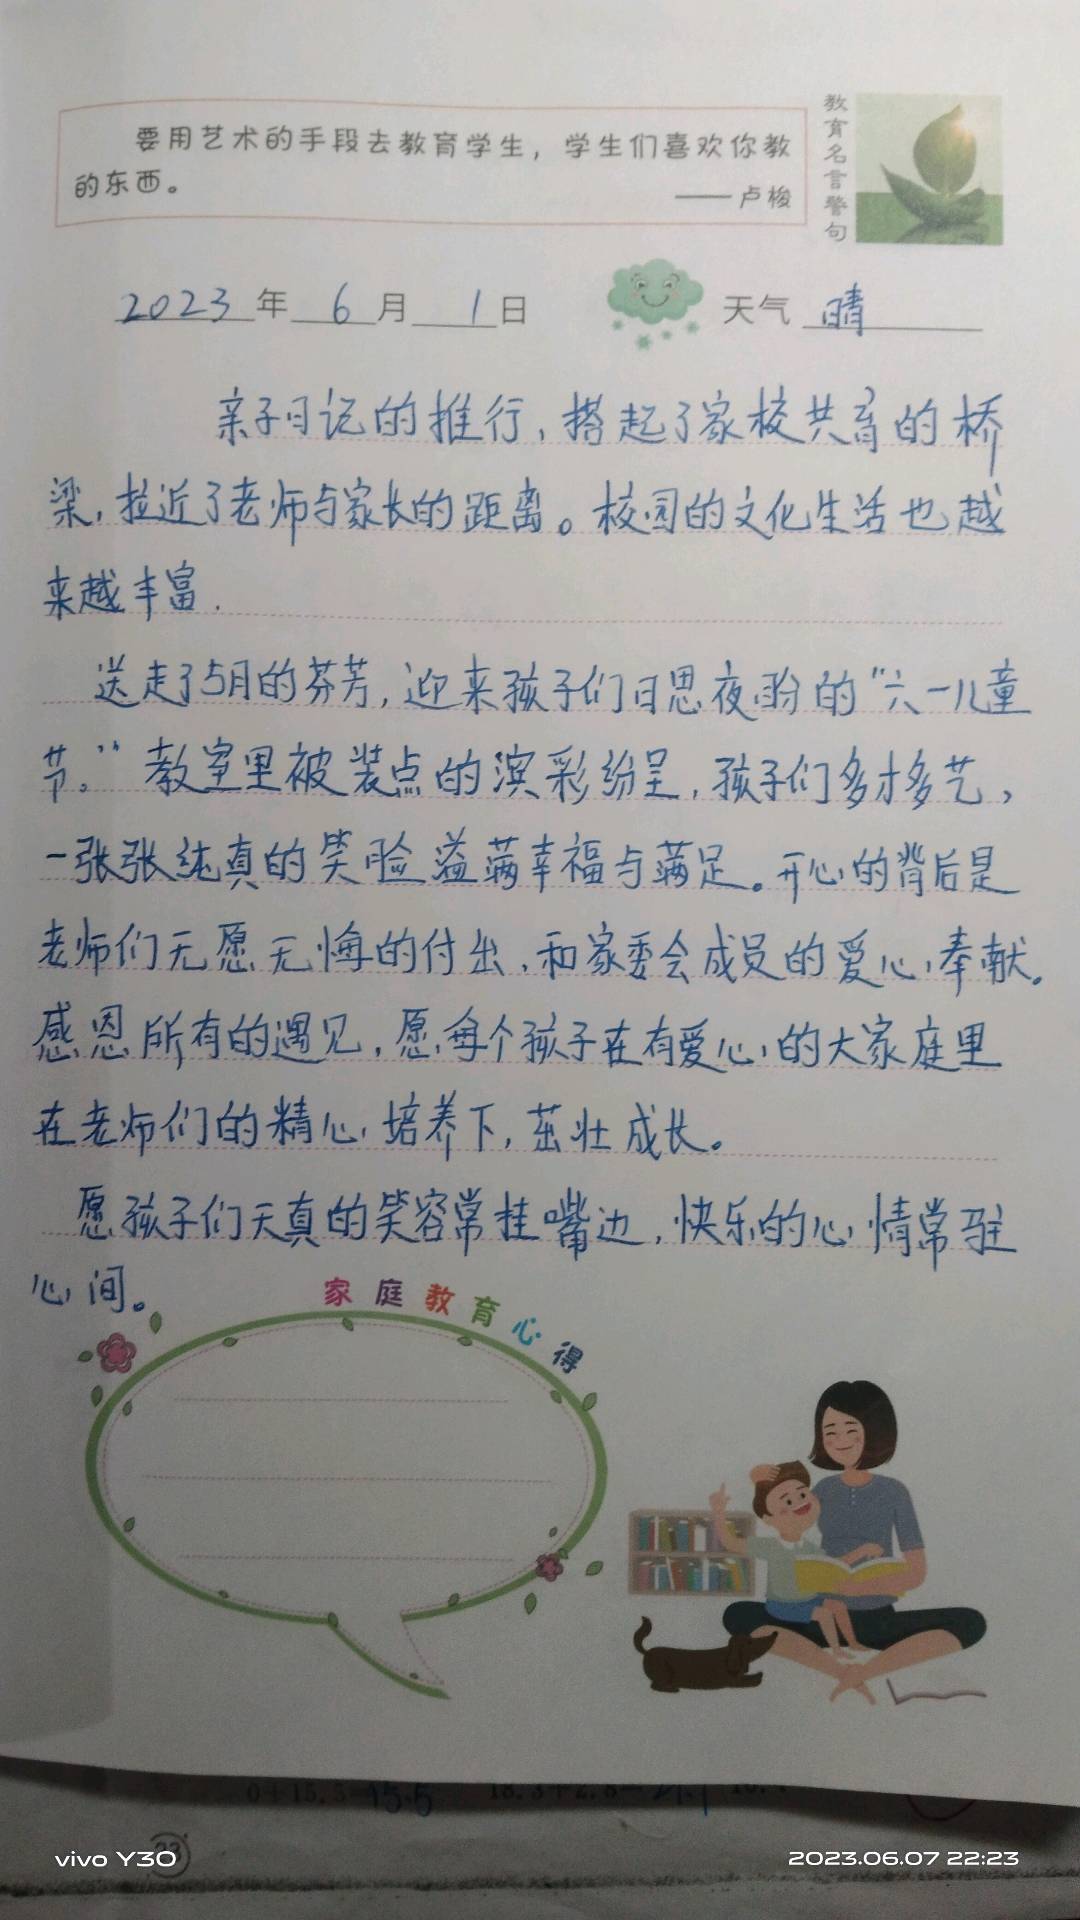 要用艺术的手段去教育学生，学生们喜欢你教
的东西。
——卢梭
教育名言警句
2023年6月1日 天气 晴
亲子日记的推行，搭起了家校共育的桥
梁，拉近了老师与家长的距离。校园的文化生活也越
来越丰富.
送走了5月的芬芳，迎来孩子们日思夜盼的“六一儿童
节。”教室里被装点的滨彩纷呈，孩子们多才多艺，
一张张纯真的笑脸溢满幸福与满足。开心的背后是
老师们无愿无悔的付出，和家委会成员的爱心奉献。
感恩所有的遇见，愿每个孩子在有爱心的大家庭里
在老师们的精心培养下，茁壮成长。
愿孩子们天真的笑容常挂嘴边，快乐的心情常驻
心间。
家庭教育心得
0+15.5=15.5
23
vivo Y30
2023.06.07 22:23